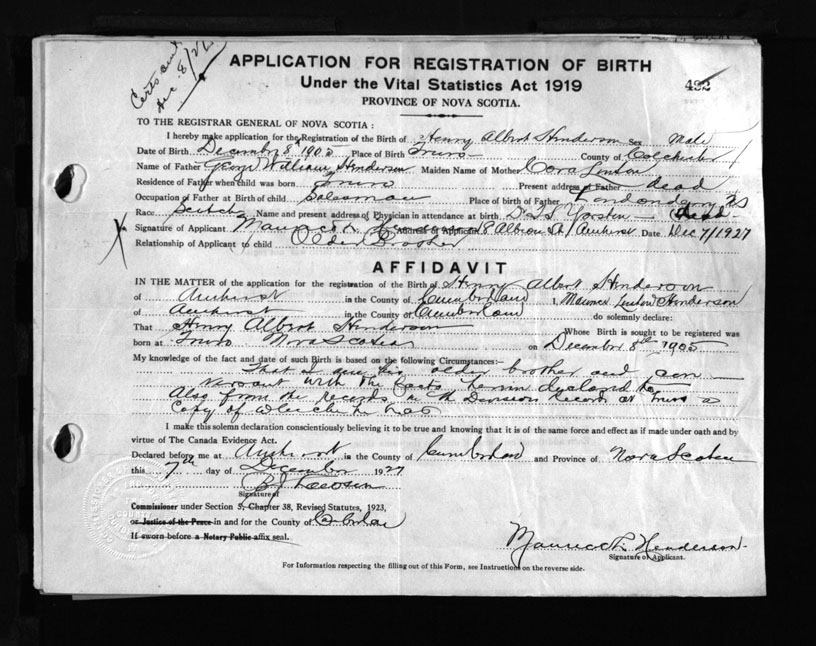 Certs sent
Dec. 8/27
APPLICATION FOR REGISTRATION OF BIRTH
Under the Vital Statistics Act 1919
482
PROVINCE OF NOVA SCOTIA.
TO THE REGISTRAR GENERAL OF NOVA SCOTIA :
I hereby make application for the Registration of the Birth of Henry Albert Henderson Sex Male
Date of Birth December 8th 1905 Place of Birth Truro County of Colchester
Name of Father George William Henderson Maiden Name of Mother Cora Linton
Residence of Father when child was born Truro Present address of Father dead
Occupation of Father at Birth of child Salesman Place of birth of Father Londonderry NS
Race Scotch Name and present address of Physician in attendance at birth Dr Yorston dead
Signature of Applicant Maurice L. Henderson Address of Applicant 8 Albion St Amherst Date Dec 7/1927
Relationship of Applicant to child Older Brother
AFFIDAVIT
IN THE MATTER of the application for the registration of the Birth of Henry Albert Henderson
of Amherst in the County of Cumberland I, Maurice Linton Henderson
of Amherst in the County of Cumberland do solemnly declare:
That Henry Albert Henderson Whose Birth is sought to be registered was
born at Truro Nova Scotia on December 8th 1905
My knowledge of the fact and date of such Birth is based on the following Circumstances:—
That I am his older brother and am
versant with the facts herein declared to
Also from the records in the Division Records at Truro a
Copy of which he has
I make this solemn declaration conscientiously believing it to be true and knowing that it is of the same force and effect as if made under oath and by
virtue of The Canada Evidence Act.
Declared before me at Amherst in the County of Cumberland and Province of Nova Scotia
this 7th day of December 1927
Signature of
Commissioner under Section 5, Chapter 38, Revised Statutes, 1923,
or Justice of the Peace in and for the County of Cumberland
If sworn before a Notary Public affix seal.
Maurice L. Henderson
Signature of Applicant.
For Information respecting the filling out of this Form, see Instructions on the reverse side.